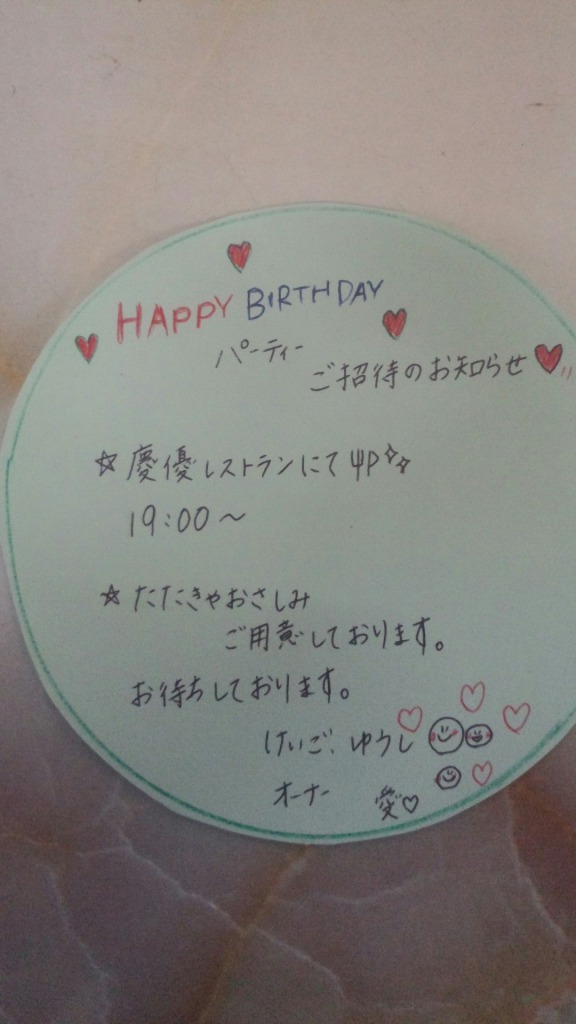 HAPPY BIRTHDAY
パーティー
ご招待のお知らせ
☆慶優レストランにて
19:00〜
☆たたきやおさしみ
ご用意しております。
お待ちしております。
けいご、ゆうし
オーナー 愛♡